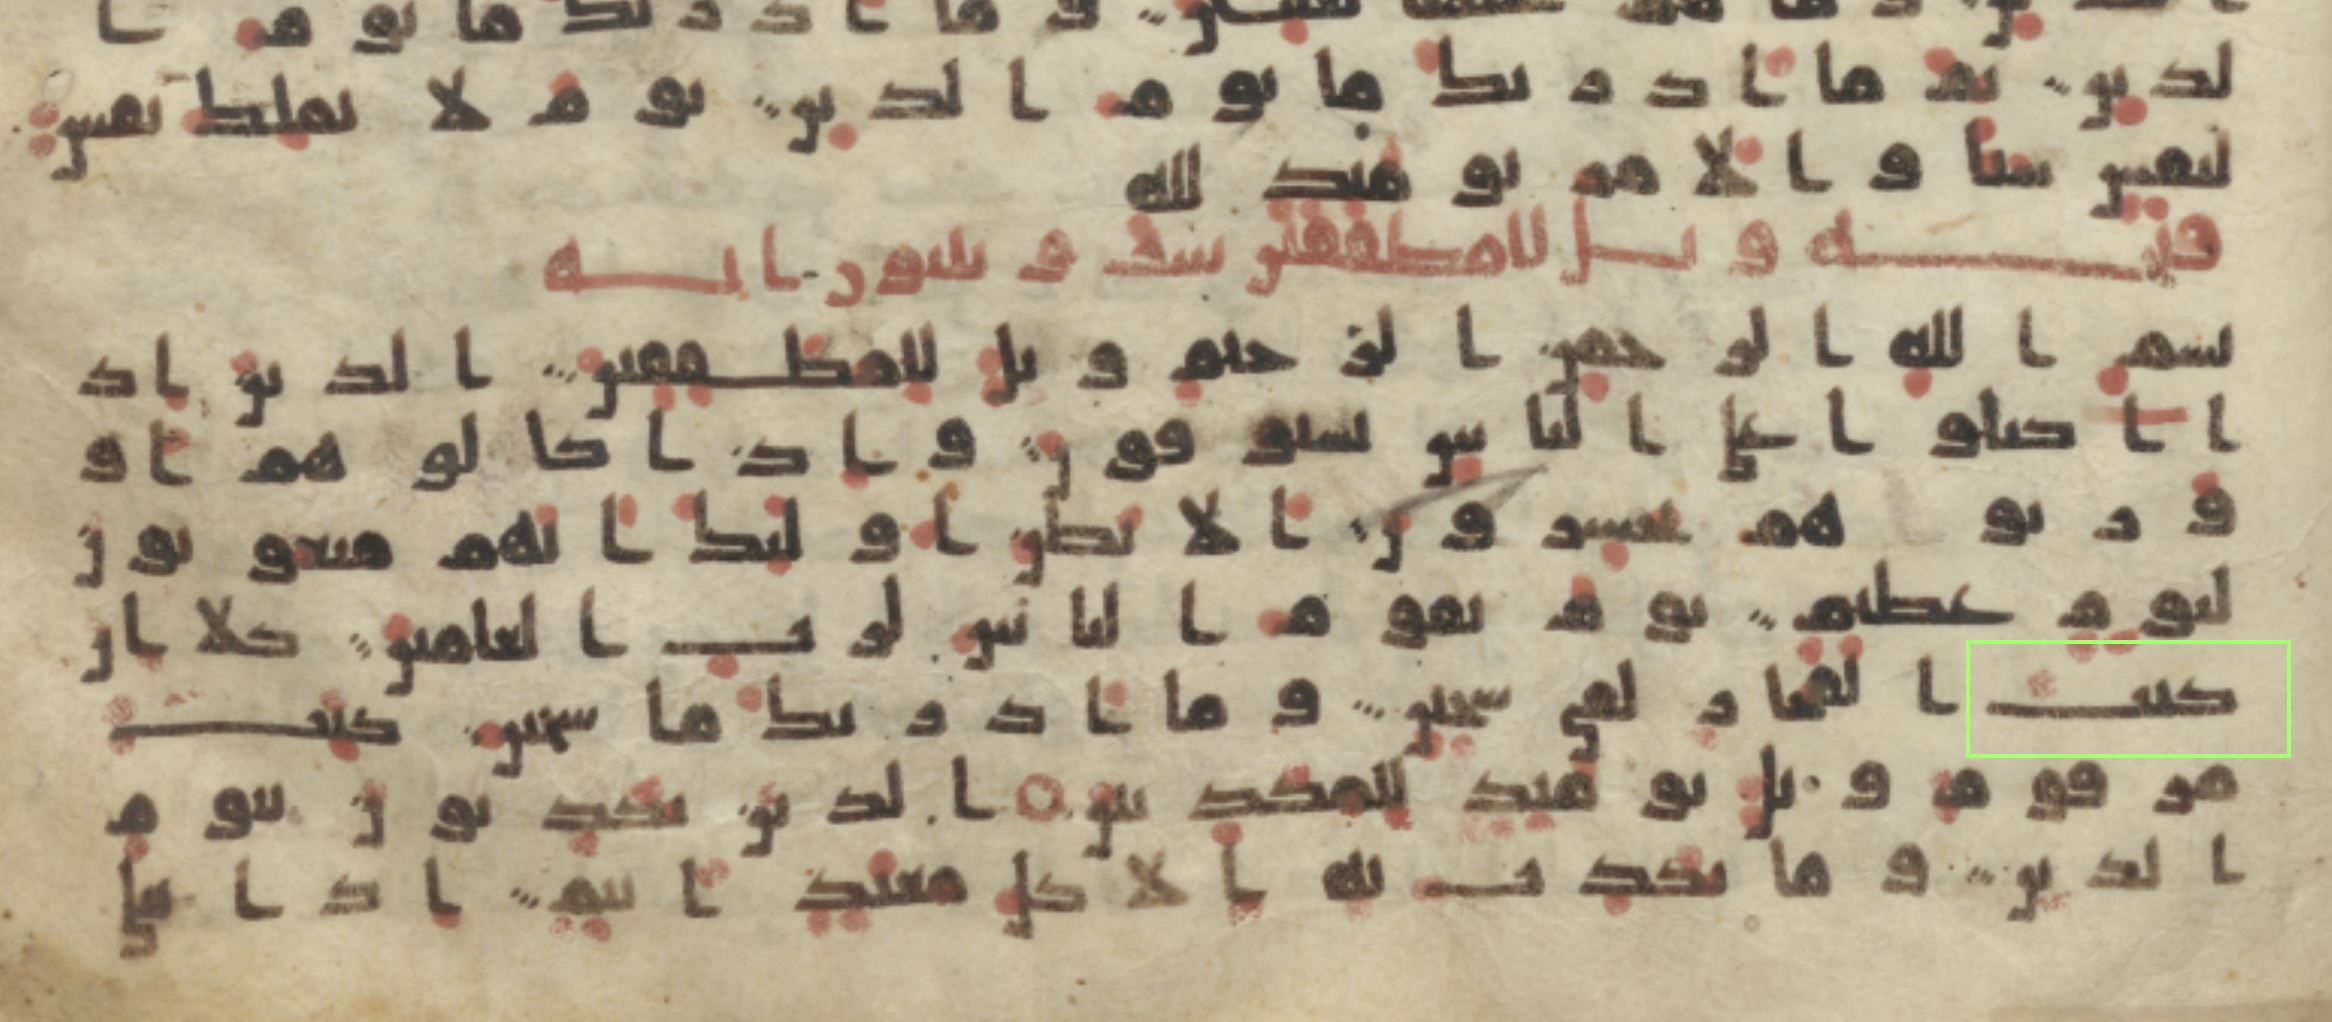 الدين وما هم عنها بغائبين وما ادريك ما يوم ا
لدين ثم ما ادريك ما يوم الدين يوم لا تملك نفس
لنفس شيا والامر يومئذ لله
فتحه ويل للمطففين ست و ثلثون ايه
بسم الله الرحمن الرحيم ويل للمطففين الذين اذ
ا اكتالوا على الناس يستوفون واذا كالوهم او
وزنوهم يخسرون الا يظن اولئك انهم مبعوثون
ليوم عظيم يوم يقوم الناس لرب العلمين كلا ان
كتب الفجار لفي سجين وما ادريك ما سجين كتب
مرقوم ويل يومئذ للمكذبين الذين يكذبون بيوم
الدين وما يكذب به الا كل معتد اثيم اذا تتلى